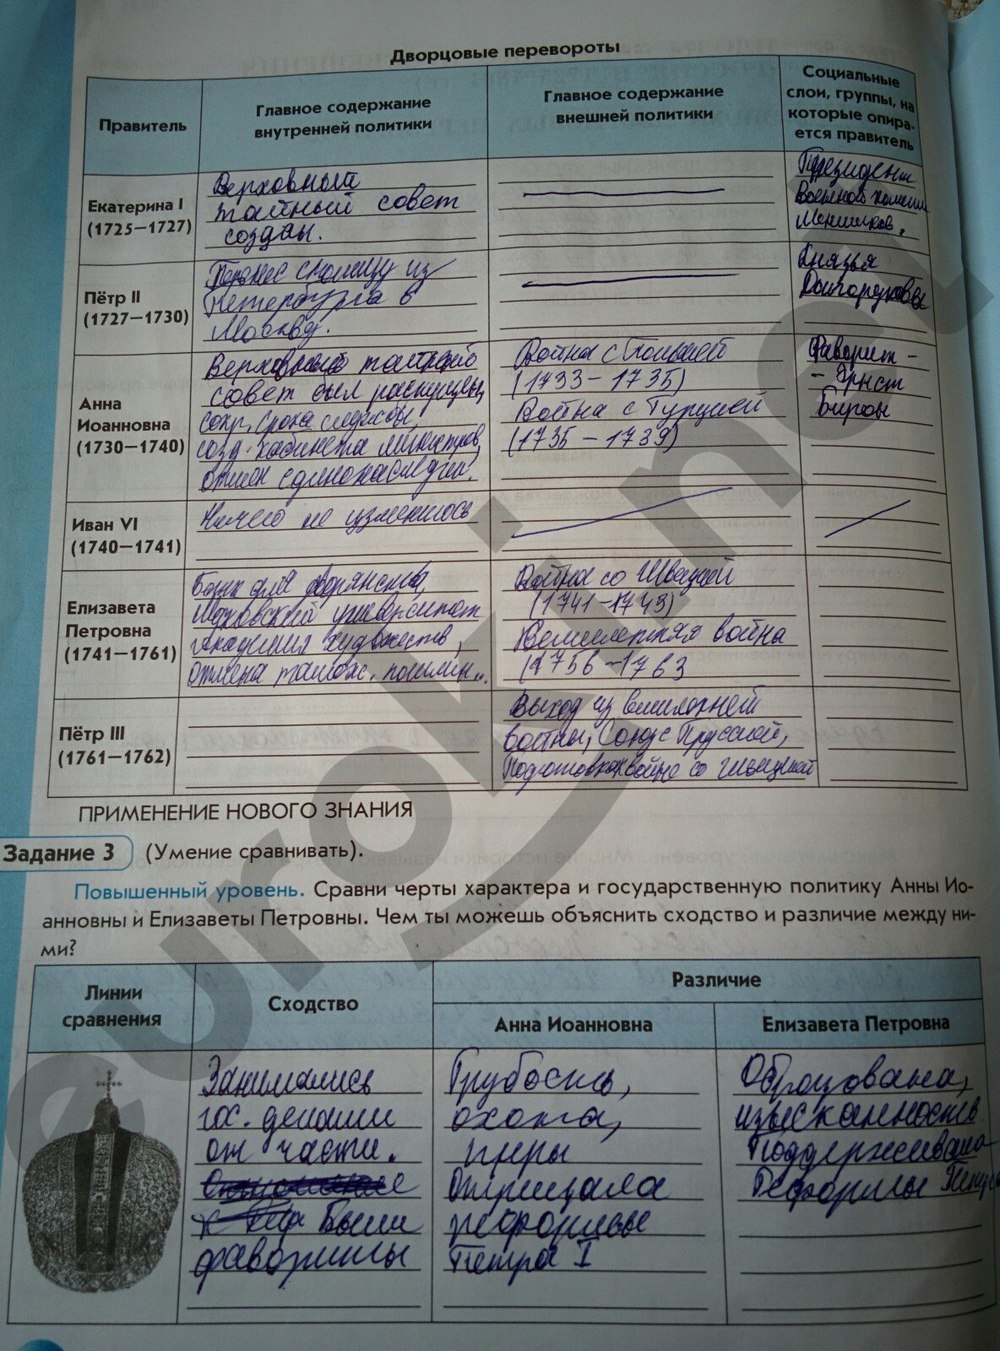 Дворцовые перевороты
Правитель
Главное содержание
внутренней политики
Главное содержание
внешней политики
Социальные
слои, группы, на
которые опира-
ется правитель
Екатерина I
(1725—1727)
Верховный
тайный совет
создан.
Президент
Военной
Меншиков.
Пётр II
(1727—1730)
Перенес столицу из
Петербурга в
Москву.
Князья
Долгоруковы
Анна
Иоанновна
(1730—1740)
Верховный тайный
совет был распущен,
сокр. срока службы,
созд. кабинета министров,
отмен единонаследия.
Война с Польшей
(1733 – 1735)
Война с Турцией
(1735 – 1739)
Фаворит -
- Эрнст
Бирон
Иван VI
(1740—1741)
Ничего не изменилось
Елизавета
Петровна
(1741—1761)
Банк для дворянства,
Московский университет
Академия художеств,
Отмена тамож. пошлин..
Война со Швецией
(1741-1743)
Семилетняя война
(1756-1763
Пётр III
(1761—1762)
Выход из семилетней
войны, Союз с Пруссией,
Подготовка к войне со
ПРИМЕНЕНИЕ НОВОГО ЗНАНИЯ
Задание 3 (Умение сравнивать).
Повышенный уровень. Сравни черты характера и государственную политику Анны Ио-
анновны и Елизаветы Петровны. Чем ты можешь объяснить сходство и различие между ни-
ми?
Линии
сравнения
Сходство
Различие
Анна Иоанновна
Елизавета Петровна
Занимались
гос. делами
от части.
Были
фавориты
Грубость,
охота,
пиры
Отрицала
реформы
Петра I
Образована,
изысканность.
Поддерживала
Реформы Петра
euroki.net